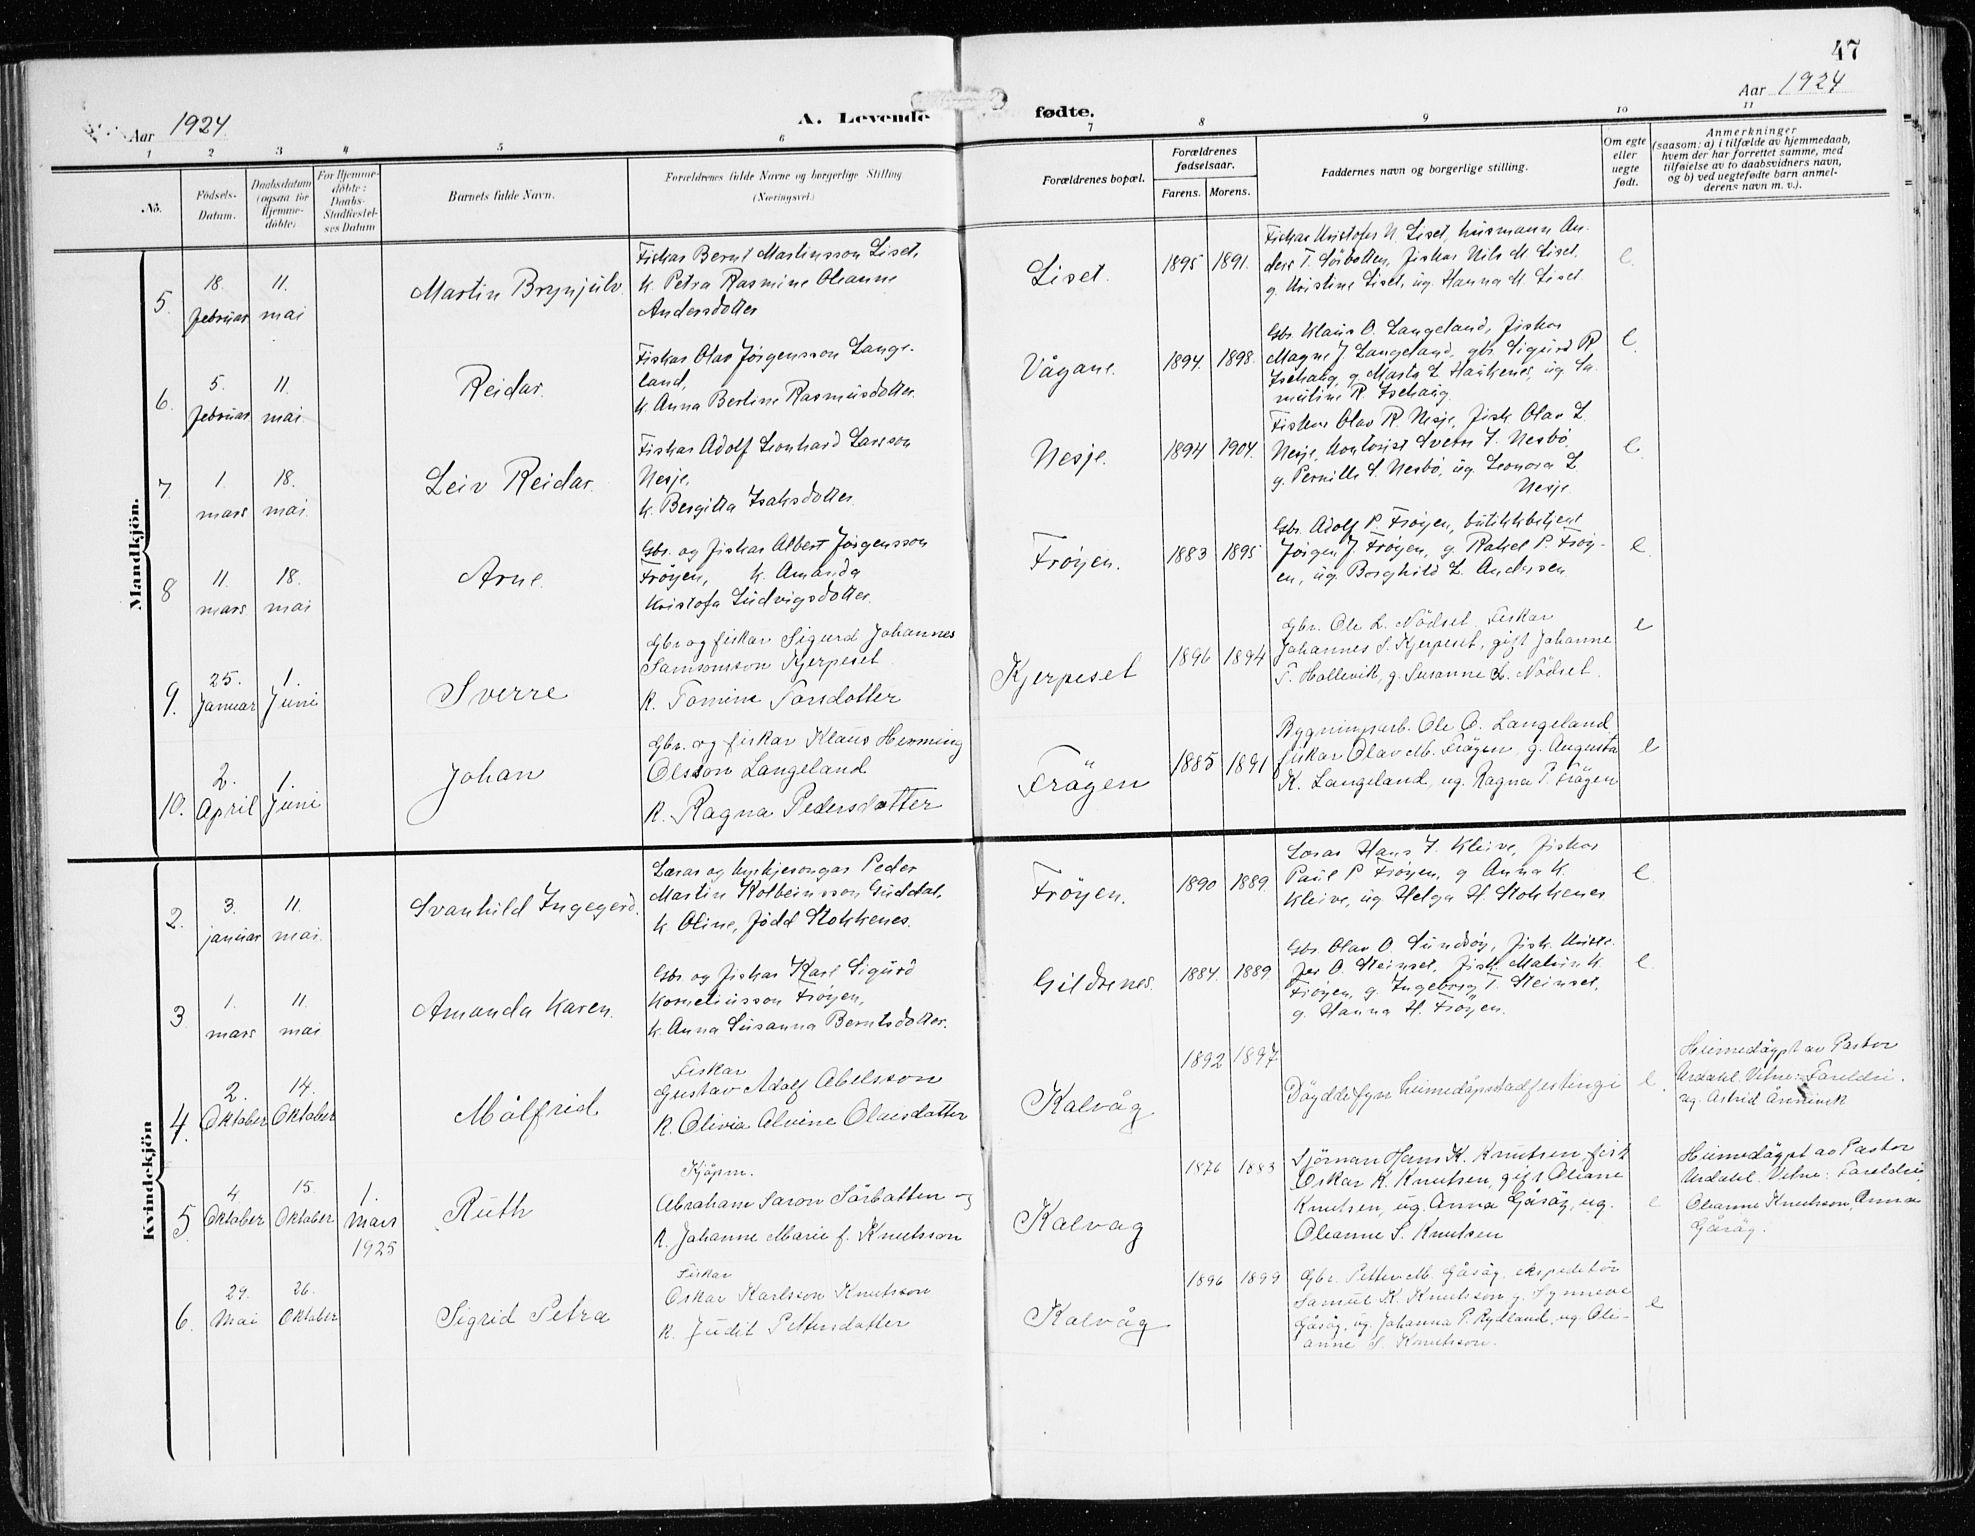 47
Aar 1924
A. Levende fødte.
Aar 1924
1 2 3 4 5 6 7 8 9 10 11
No.
Fødsels-Datum.
Daabsdatum (ogsaa for Hjemme-døbte)
For Hjemme-døbte: Daabs-Stadfæstel-ses Datum
Barnets fulde Navn.
Forældrenes fulde Navne og borgerlige Stilling
(Næringsvei.)
Forældrenes bopæl.
Forældrenes fødselsaar.
Farens. Morens.
Faddernes navn og borgerlige stilling.
Om egte eller uegte født.
Anmerkninger
(saasom: a) i tilfælde av hjemmedaab,
hvem der har forrettet samme, med
tilføielse av to daabsvidners navn,
og b) ved uegtefødte barn anmel-
derens navn m. v.).
Mandkjön.
5. 18. februar 11. mai Martin Brynjulv.
Fiskar Bernt Martinsson Liset,
k. Petra Rasmine Oleanne
Andersdotter
Liset. 1895 1891.
Fiskar Kristofer N. Liset, husmann An-
ders T. Sörbotten, fiskar Nils M. Liset,
g. Kristine Liset, ug. Hanna M. Liset
e.
6. 5. februar 11. mai Reidar.
Fiskar Olav Jørgensson Lange-
land,
k. Anna Bertine Rasmusdotter.
Vågane. 1894. 1898.
Gbr. Klaus O. Langeland, fiskar
Magne J. Langeland, gbr. Sigurd R
Isehaug, g Marta L Haukenes, ug.
R. Isehaug.
e.
7. 1. mars 18. mai. Leiv Reidar.
Fiskar Adolf Leonhard Larsson
Nesje,
k. Bergitta Isaksdotter.
Nesje. 1894 1904.
Fiskar Olav R. Nesje, fisk Olav L.
Nesje, Sverre I. Nesbø,
g. Pernille S. Nesbø, ug. Leonora L
Nesje.
e.
8 11. mars 18. mai Arne.
Gbr. og fiskar Albert Jørgensson
Frøyen, k. Amanda
Kristofa Ludvigsdotter.
Frøyen. 1883 1895
Gbr. Adolf P. Frøyen, butikkbetjent
Jørgen J. Frøyen, g. Rakel P. Frøy-
en, ug. Borghild L. Andersen
e.
9. 25. Januar 1. Juni Sverre
Gbr og fiskar Sigurd Johannes
Samsonson Kjerpeset
k. Tomine Torsdotter
Kjerpeset 1896 1894
Gbr. Ole L. Nödset. Fiskar
Johannes S. Kjerpeset, gift Johanne
T. Hallevik, g. Susanne L. Nödset.
e
10. 2. April 1. Juni Johan
Gbr. og fiskar Klaus Henning
Olsson Langeland
k. Ragna Pedersdotter
Frøyen 1885 1891
Bygningsarb. Ole O. Langeland
fiskar Olav M. Frøyen, g. Augusta
K. Langeland, ug. Ragna P. Frøyen
e
Kvindekjön
2. 3. januar 11. mai. Svanhild Ingegerd.
Lærar og kyrkjesongar Peder
Martin Kolbeinsson Guddal,
k Oline, fødd Stokkenes.
Frøyen. 1890 1889.
Lærar Hans I. Kleive, fiskar
Paul P Frøyen, g Anna K.
Kleive, ug Helga H. Stokkenes
e.
3. 1. mars 11. mai Amanda Karen.
Gbr og fiskar Karl Sigurd
Korneliusson Frøyen,
k. Anna Susanna Berntsdotter.
Gildrenes. 1884. 1889
Gbr. Olav O. Sundöy, fisk. Kristo-
fer O. Steinset, fisk. Malvin K.
Frøyen, g. Ingeborg T. Steinset,
g. Hanna H. Frøyen.
e.
4. 2. Oktober 14. Oktober Målfrid
Fiskar
Gustav Adolf Abelsson
k. Olivia Alvine Olaesdatter
Kalvåg 1892 1897
Döydde fyre heimedåpstadfestingi
e.
Heimedöypt av Pastor
Urdahl. Vitne: Foreldri.
ug. Astrid
5 4 Oktober 15. Oktober 1. Mars 1925 Ruth
Kjöpm.
Abraham Saron Sörbotten og
k. Johanne Marie f. Knutsson
Kalvåg 1876 1883
Sjömann Hans K. Knutsen, fisk
Oskar K. Knutsen, gift Oliane
Knutsen, ug. Anna Gåsöy, ug.
Oleanne S. Knutsen
e
Heimedöypt av Pastor
Urdahl. Vitne: Foreldri,
Oleanne Knutsson, Anna
Gåsöy.
6. 29. Mai 26. Oktober Sigrid Petra
Fiskar
Oskar Karlsson Knutsson
k. Judit Pettersdatter
Kalvåg 1896 1899
Gbr. Petter M. Gåsöy, ekspeditör
Samuel K. Knutsson g. Synneve
Gåsöy, ug. Johanna P. Rydland, ug. Ole-
anne S. Knutsson.
e